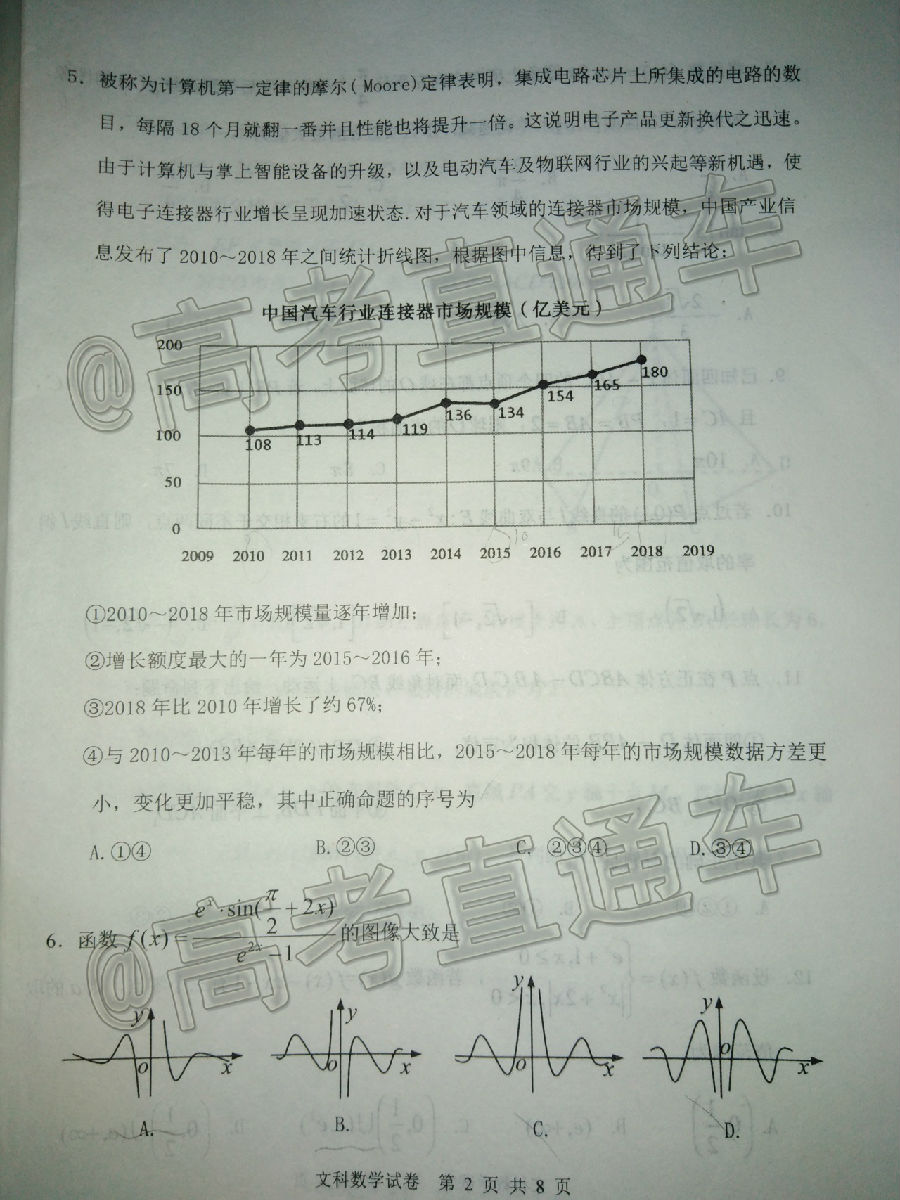 5. 被称为计算机第一定律的摩尔(Moore)定律表明，集成电路芯片上所集成的电路的数
目，每隔 18 个月就翻一番并且性能也将提升一倍。这说明电子产品更新换代之迅速。
由于计算机与掌上智能设备的升级，以及电动汽车及物联网行业的兴起等新机遇，使
得电子连接器行业增长呈现加速状态. 对于汽车领域的连接器市场规模，中国产业信
息发布了 2010～2018 年之间统计折线图，根据图中信息，得到了下列结论：
@高考直通车
中国汽车行业连接器市场规模（亿美元）
200
150
100
50
0
108 113 114 119 136 134 154 165 180
2009 2010 2011 2012 2013 2014 2015 2016 2017 2018 2019
①2010～2018 年市场规模量逐年增加；
②增长额度最大的一年为 2015～2016 年；
③2018 年比 2010 年增长了约 67%；
④与 2010～2013 年每年的市场规模相比，2015～2018 年每年的市场规模数据方差更
小，变化更加平稳，其中正确命题的序号为
A. ①④ B. ②③ C. ②③④ D. ③④
@高考直通车
6. 函数 f(x) = \frac{e^x·sin(\frac{π}{2}+2x)}{e^{2x}-1} 的图像大致是
y O x y O x y O x y O x
A. B. C. D.
文科数学试卷 第 2 页 共 8 页